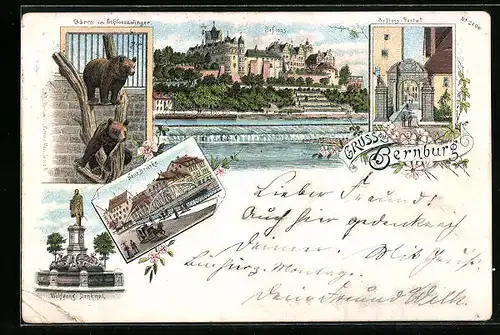 Bären im Schlosszwinger.
Schloss
Schloss-Portal
GRUSS aus
Bernburg
Saal-Brücke
Wolfgang-Denkmal.
Lieber Freund!
Auch hier gedenke ich
Deiner. Mit Gruss
Dein Freund